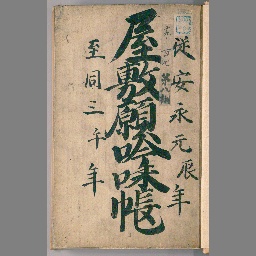 従安永元辰年
屋敷願吟味帳
至同三午年